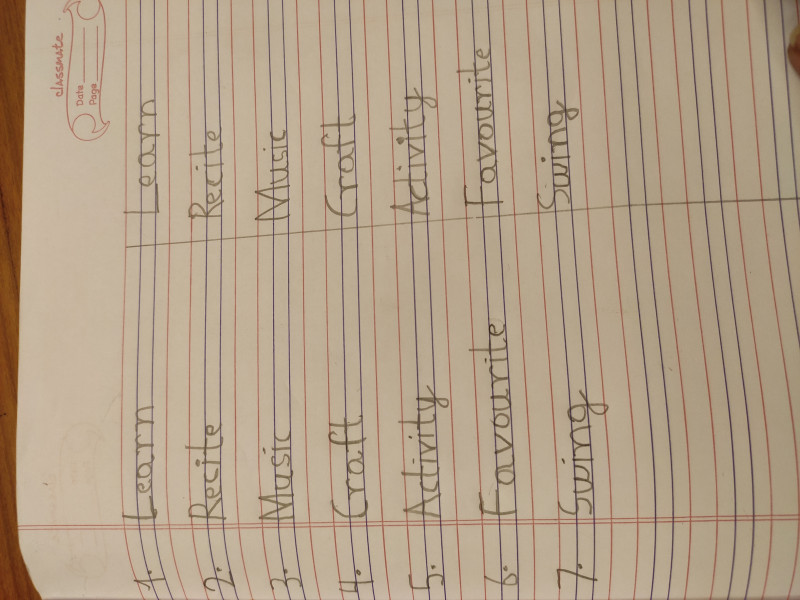 classmate
Date
Page
1. Learn Learn
2. Recite Recite
3. Music Music
4. Craft Craft
5. Activity Activity
6. Favourite Favourite
7. Swing Swing